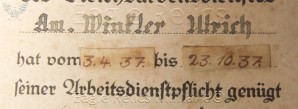 des Reichsarbeitsdienstes
Am. Winkler Ulrich
hat vom 3.4.37. bis 23.10.37.
seiner Arbeitsdienstpflicht genügt